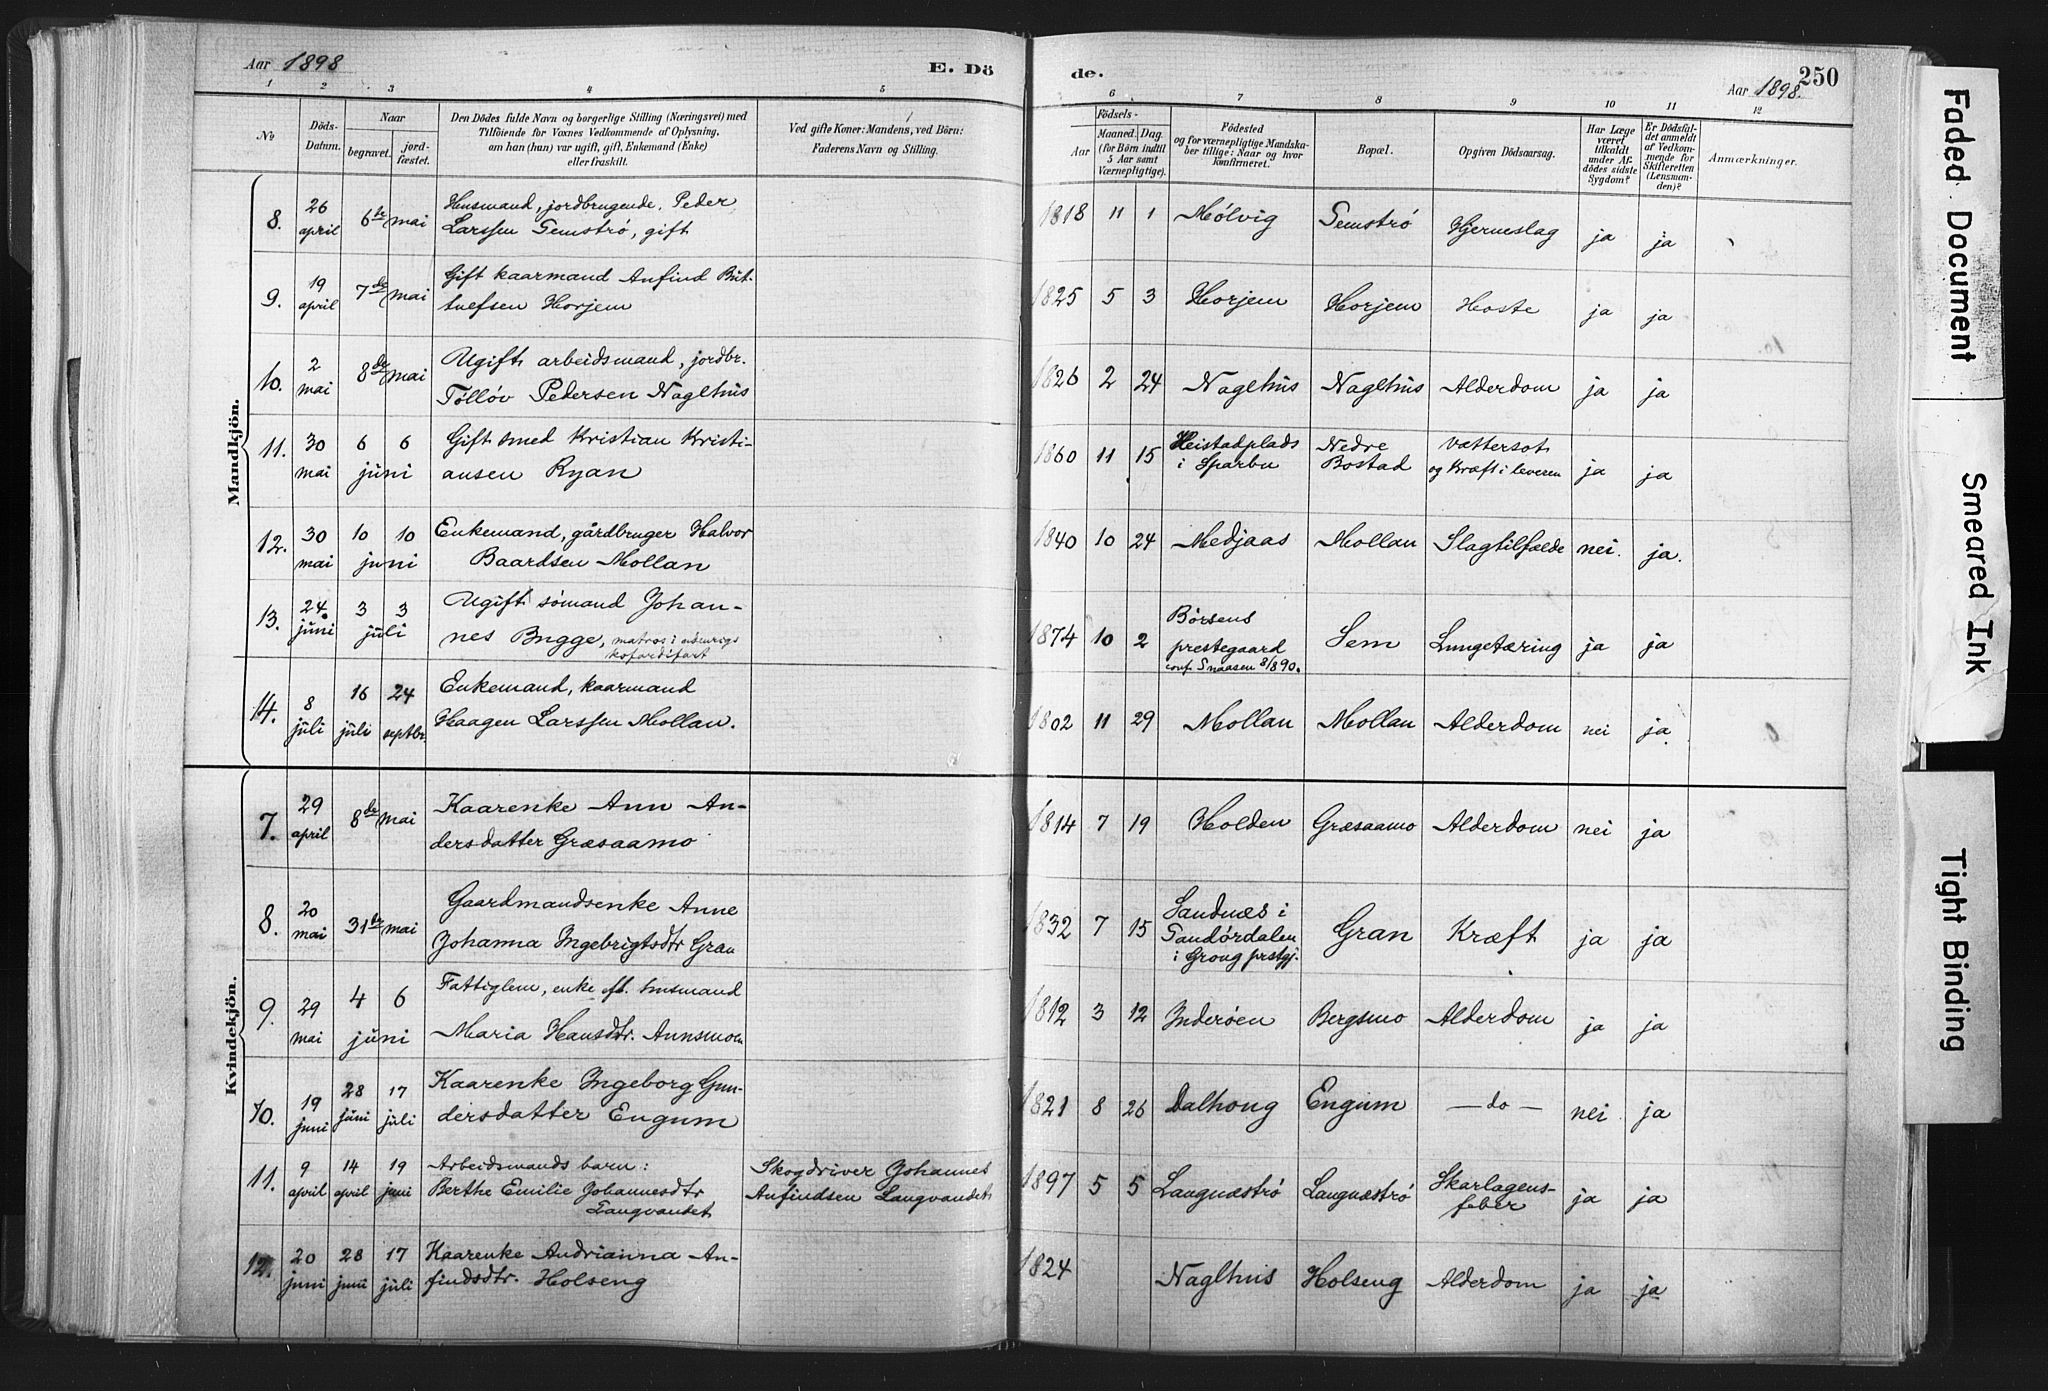 Aar 1898
E. Dö
de.
250
Aar 1898.
1 2 3 4 5 6 7 8 9 10 11 12
No
Döds-
Datum.
Naar
begravet.
jord-
fæstet.
Den Dödes fulde Navn og borgerlige Stilling (Næringsvei) med
Tilföiende for Voxnes Vedkommende af Oplysning,
om han (hun) var ugift, gift, Enkemand (Enke)
eller fraskilt.
Ved gifte Koner: Mandens, ved Börn:
Faderens Navn og Stilling.
Födsels-
Aar
Maaned. Dag.
(for Börn indtil
5 Aar samt
Værnepligtige).
Födested
og for værnepligtige Mandska-
ber tillige: Naar og hvor
konfirmeret.
Bopæl.
Opgiven Dödsaarsag.
Har Læge
været
tilkaldt
under Af-
dödes sidste
Sygdom?
Er Dödsfal-
det anmeldt
af Vedkom-
mende for
Skifteretten
(Lensman-
den)?
Anmærkninger.
Mandkjön.
8. 26 april 6te mai Husmand, jordbrugende, Peder
Larssen Semströ, gift
1818 11 1 Mölvig Semströ Hjerneslag ja ja
9. 19 april 7de mai Gift kaarmand Anfind Bot-
tolfsen Horjem
1825 5 3 Horjem Horjem Hoste ja ja
10. 2 mai 8de mai Ugift arbeidsmand, jordbr.
Tölløv Pedersen Naglhus
1826 2 24 Naglhus Naglhus Alderdom ja ja
11. 30 mai 6 6 juni Gift smed Kristian Kristi-
ansen Ryan
1860 11 15 Heistadplads
i Sparbu
Nedre
Bostad
Vattersot
og Kræft i leveren
ja ja
12. 30 mai 10 10 juni Enkemand, gårdbruger Halvor
Baardsen Mollan
1840 10 24 Medjaas Mollan Slagtilfælde nei. ja.
13. 24. juni 3 3 juli Ugift sömand Johan-
nes Bugge, matros i udenrigs
kofardifart
1874 10 2 Börsens
prestegaard
conf. Snaasen 8/890.
Sem Lungetæring ja ja
14. 8 juli 16 juli 24 septbr. Enkemand, kaarmand
Haagen Larssen Mollan.
1802 11 29 Mollan Mollan Alderdom nei ja
Kvindekjön.
7. 29 april 8de mai Kaarenke Ann An-
dersdatter Græsaamo
1814 7 19 Holden Græsaamo Alderdom nei ja
8. 20 mai 31te mai Gaardmandsenke Anne
Johanna Ingebrigtsdtr Gran
1832 7 15 Sandnæs i
Sandördalen
i Grong prstgj.
Gran Kræft ja ja
9. 29 mai 4 6 juni Fattiglem, enke eft. husmand
Maria Hansdtr. Annsmoen
1812 3 12 Inderöen Bergsmo Alderdom ja ja
10. 19 juni 28 juni 17 juli Kaarenke Ingeborg Gun-
dersdatter Engum
1821 8 26 Dalhoug Engum — do — nei ja
11. 9 april 14 april 19 juni Arbeidsmands barn:
Berthe Emilie Johannesdtr
Langvandet
Skogdriver Johannes
Anfindsen Langvandet
1897 5 5 Langnæströ Langnæströ Skarlagens-
feber
ja ja
12. 20 juni 28 juni 17 juli Kaarenke Andrianna An-
findsdtr. Holseng
1824 Naglhus Holseng Alderdom ja ja
Faded Document
Smeared Ink
Tight Binding